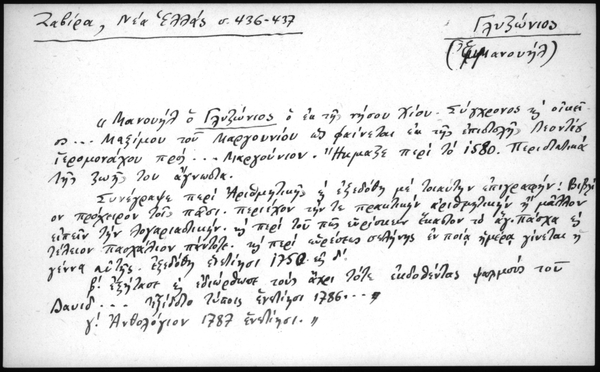 Ζαβίρα, Νέα Ἑλλάς σ. 436-437
Γλυζώνιος
(Ἐμμανουήλ)
"Μανουήλ ὁ Γλυζώνιος ὁ ἐκ τῆς νήσου Χίου. Σύγχρονος κ οἰκεῖ
ος... Μαξίμου τοῦ Μαργουνίου ὡς φαίνεται ἐκ τῆς ἐπιστολῆς Λεοντίου
ἱερομονάχου πρός ... Μαργούνιον. Ἤκμαζε περί τό 1580. Περιστατικά
τῆς ζωῆς του ἄγνωστα.
Συνέγραψε περί Ἀριθμητικῆς ἡ ἐξεδόθη μέ τοιαύτην ἐπιγραφήν: Βιβλί
ον πρόχειρον τοῖς πᾶσι. περιέχον τήν τε πρακτικήν ἀριθμητικήν ἤ μᾶλλον
εἰπεῖν τήν λογαριαστικήν. κ περί τοῦ πῶς εὑρίσκειν ἕκαστον τό ἅγ. πάσχα κ
τέλειον πασχάλιον πάντοτε. κ περί εὑρέσεως σελήνης ἐν ποίᾳ ἡμέρᾳ γίνεται ἡ
γέννα αὐτῆς. ἐξεδόθη ἐνετίησι 1750 εἰς δ'.
β' ἐξήτασε κ ἐδιώρθωσε τούς ἄχρι τότε ἐκδοθέντας ψαλμούς τοῦ
Δαυίδ ... τύποις ἐνετίησι 1786..."
γ' Ἀνθολόγιον 1787 ἐνετίησι."